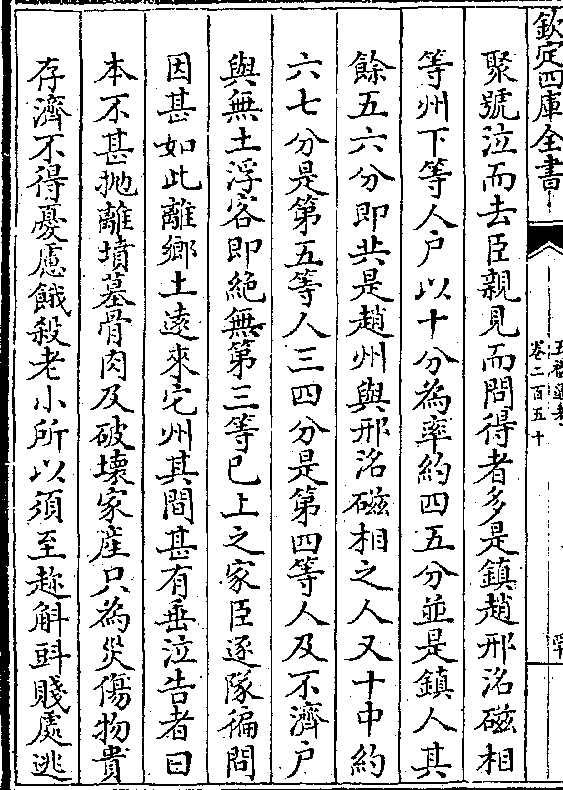 欽定四庫全書
五禮通考
卷二百五十
聚號泣而去臣親見而問得者多是鎮趙邢洺磁相
等州下等人户以十分為率約四五分並是鎮人其
餘五六分即共是趙州與邢洺磁相之人又十中約
六七分是第五等人三四分是第四等人及不濟户
與無土浮客即絶無第三等已上之家臣逐隊徧問
因甚如此離鄉土遠來它州其間甚有垂泣告者曰
本不甚抛離墳墓骨肉及破壊家産只為災傷物貴
存濟不得憂慮餓殺老小所以須至趂斛㪷賤處逃